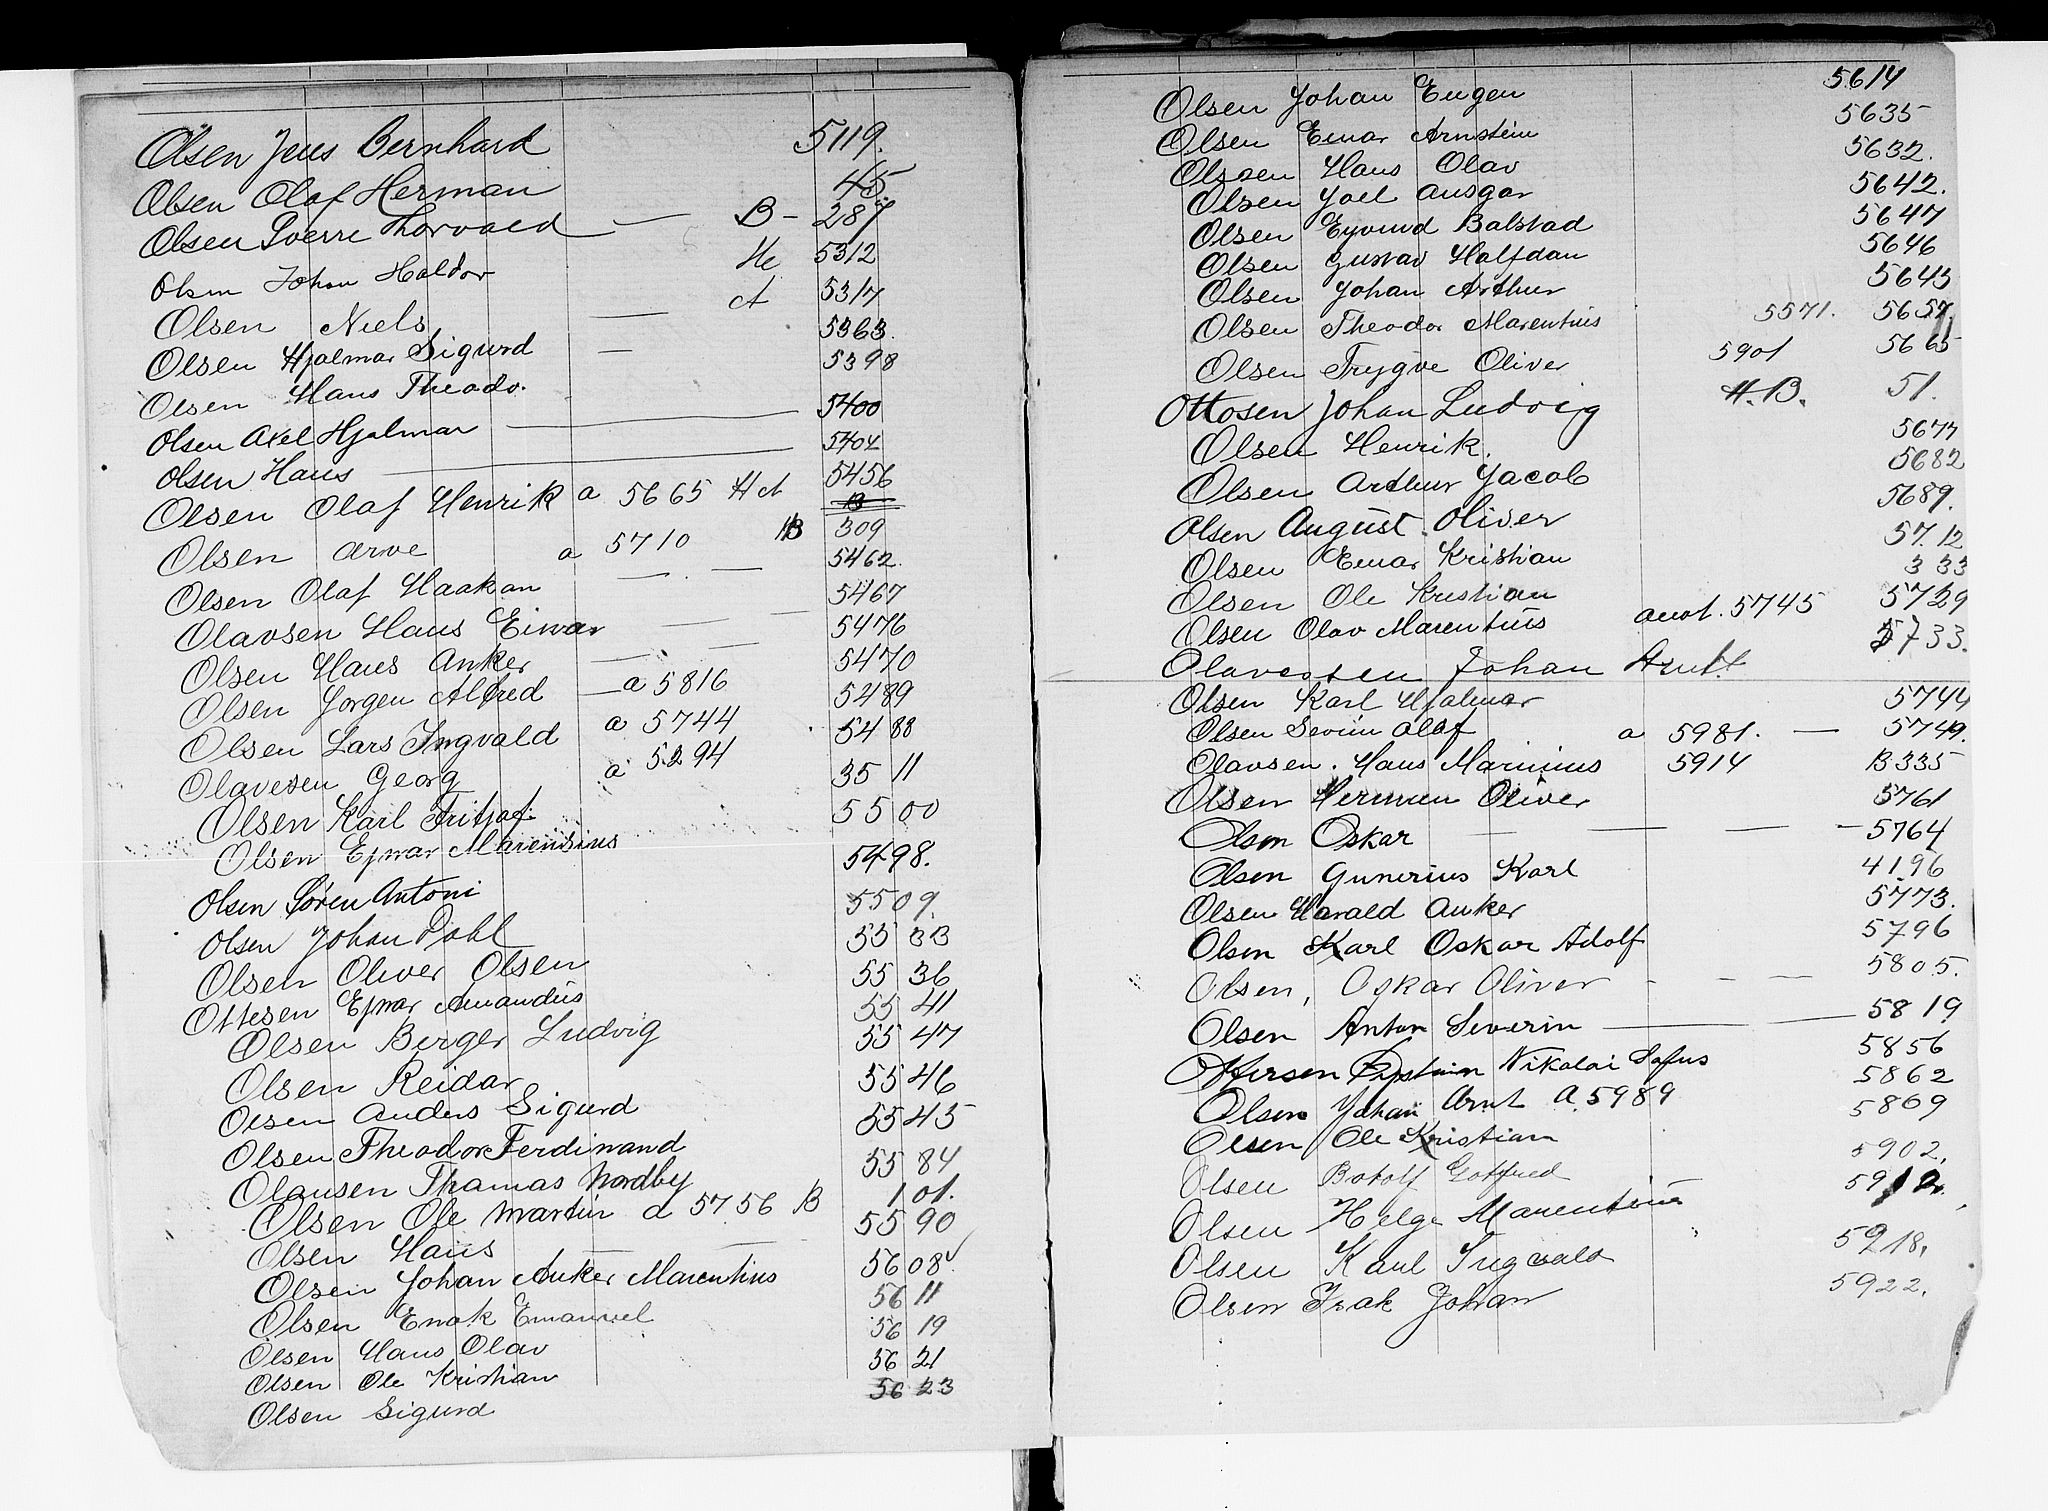 Olsen Jens Bernhard 5119.
Olsen Olaf Herman 45
Olsen Sverre Thorvald — B - 287
Olsen Johan Haldor He 5312
Olsen Niels — A 5317
Olsen Hjalmar Sigurd — 5363
Olsen Hans Theodo. 5398
Olsen Axel Hjalmar — 5400
Olsen Hans — 5404
Olsen Olaf Henrik a 5665 HA 5456
Olsen Arve a 5710 HB 309
Olsen Olaf Haakon — — 5462
Olavsen Hans Einar — — 5467
Olsen Hans Anker — — 5476
Olsen Jørgen Alfred — a 5816 5470
Olsen Lars Ingvald a 5744 5489
Olavesen Georg a 5294 5488
Olsen Karl Fritjof. 3511
Olsen Ejnar Marensius 5500
Olsen Søren Antoni 5498.
Olsen Johan Dahl 5509.
Olsen Oliver Olsen 5533
Ottesen Ejnar Amandus 5536
Olsen Berger Ludvig 5541
Olsen Reidar 5547
Olsen Anders Sigurd 5546
Olsen Theodor Ferdinand 5545
Olausen Thomas Nordby 5584
Olsen Ole Martin a 5756 B 101.
Olsen Hans — — 5590
Olsen Johan Anker Marentius 5608
Olsen Enok Emanuel 5611
Olsen Hans Olav 5619
Olsen Ole Kristian 5621
Olsen Sigurd 5623
Olsen Johan Eugen 5614
Olsen Einar Arnstein 5635
Olsen Hans Olav 5632.
Olsen Joel Ansgar 5642.
Olsen Eyvind Balstad 5647
Olsen Gustav Halfdan 5646
Olsen Johan Arthur 5643
Olsen Theodor Marentius 5571. 5657
Olsen Trygve Oliver 5901 5665
Ottosen Johan Ludvig H.B. 51.
Olsen Henrik. 5677
Olsen Arthur Jacob 5682
Olsen August Oliver 5689.
Olsen Einar Kristian 5712
Olsen Ole Kristian 333
Olsen Olav Marentius anot. 5745 5729
Olavessen Johan Arnt. 5733.
Olsen Karl Hjalmar 5744
Olsen Severin Olaf a 5981. — 5749.
Olavsen. Hans Marinius 5914 B 335
Olsen Herman Oliver 5761
Olsen Oskar — — — 5764
Olsen Gunerius Karl 4196
Olsen Harald Anker 5773.
Olsen Karl Oskar Adolf 5796
Olsen, Oskar Oliver - - — 5805.
Olsen Anton Severin — 5819
Nikolai Sofus 5856
Olsen Johan Arnt A. 5989 5862
Olsen Ole Kristian 5869
Olsen Botolf Gotfred 5902.
Olsen Helge Marentius 5912.
Olsen Karl Ingvald 5918.
Olsen Isak Johan 5922.